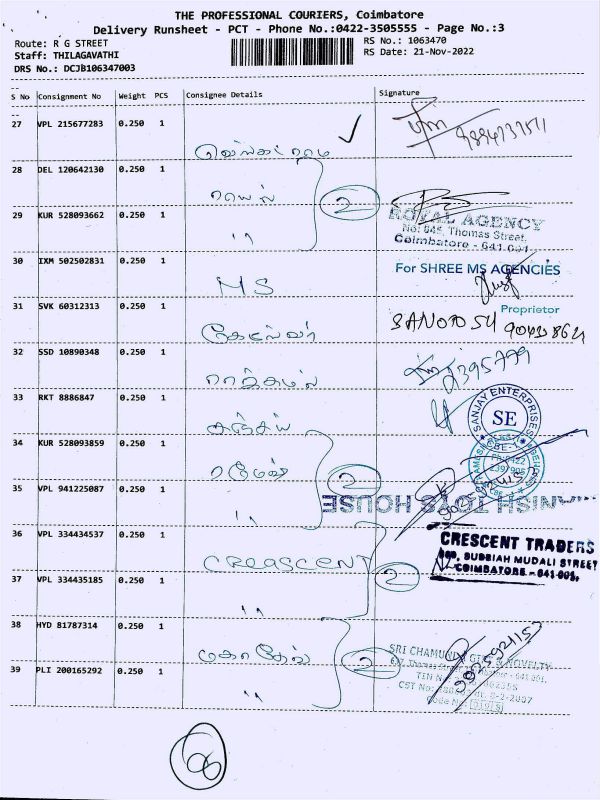 THE PROFESSIONAL COURIERS, Coimbatore
Delivery Runsheet - PCT - Phone No.:0422-3505555 - Page No.:3
Route: R G STREET
RS No.: 1063470
Staff: THILAGAVATHI
RS Date: 21-Nov-2022
DRS No.: DCJB106347003
S No Consignment No Weight PCS Consignee Details Signature
27 VPL 215677283 0.250 1
28 DEL 120642130 0.250 1
ராயல்
2
29 KUR 528093662 0.250 1
"
ROYAL AGENCY
No: 645, Thomas Street,
Coimbatore - 641 001
30 IXM 502502831 0.250 1
MS
For SHREE MS AGENCIES
Proprietor
31 SVK 60312313 0.250 1
32 SSD 10890348 0.250 1
ராஜ்கமல்
33 RKT 8886847 0.250 1
சஞ்சய்
SANJAY ENTERPRISES
SE
34 KUR 528093859 0.250 1
2
35 VPL 941225087 0.250 1
"
MANISH TOYS HOUSE
36 VPL 334434537 0.250 1
CREASCENT
2
CRESCENT TRADERS
SUBBIAH MUDALI STREET
COIMBATORE - 641 001.
37 VPL 334435185 0.250 1
"
38 HYD 81787314 0.250 1
2
SRI CHAMUNDA GIFT & NOVELTY
39 PLI 200165292 0.250 1
"